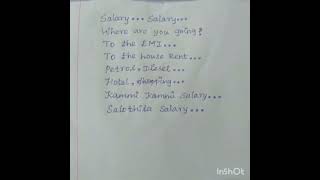 Salary... Salary...
Where are you going?
To the EMI...
To the house Rent...
Petrol, Diesel...
Hotel, shopping...
Kammi Kammi Salary...
Salothila Salary...
InShOt